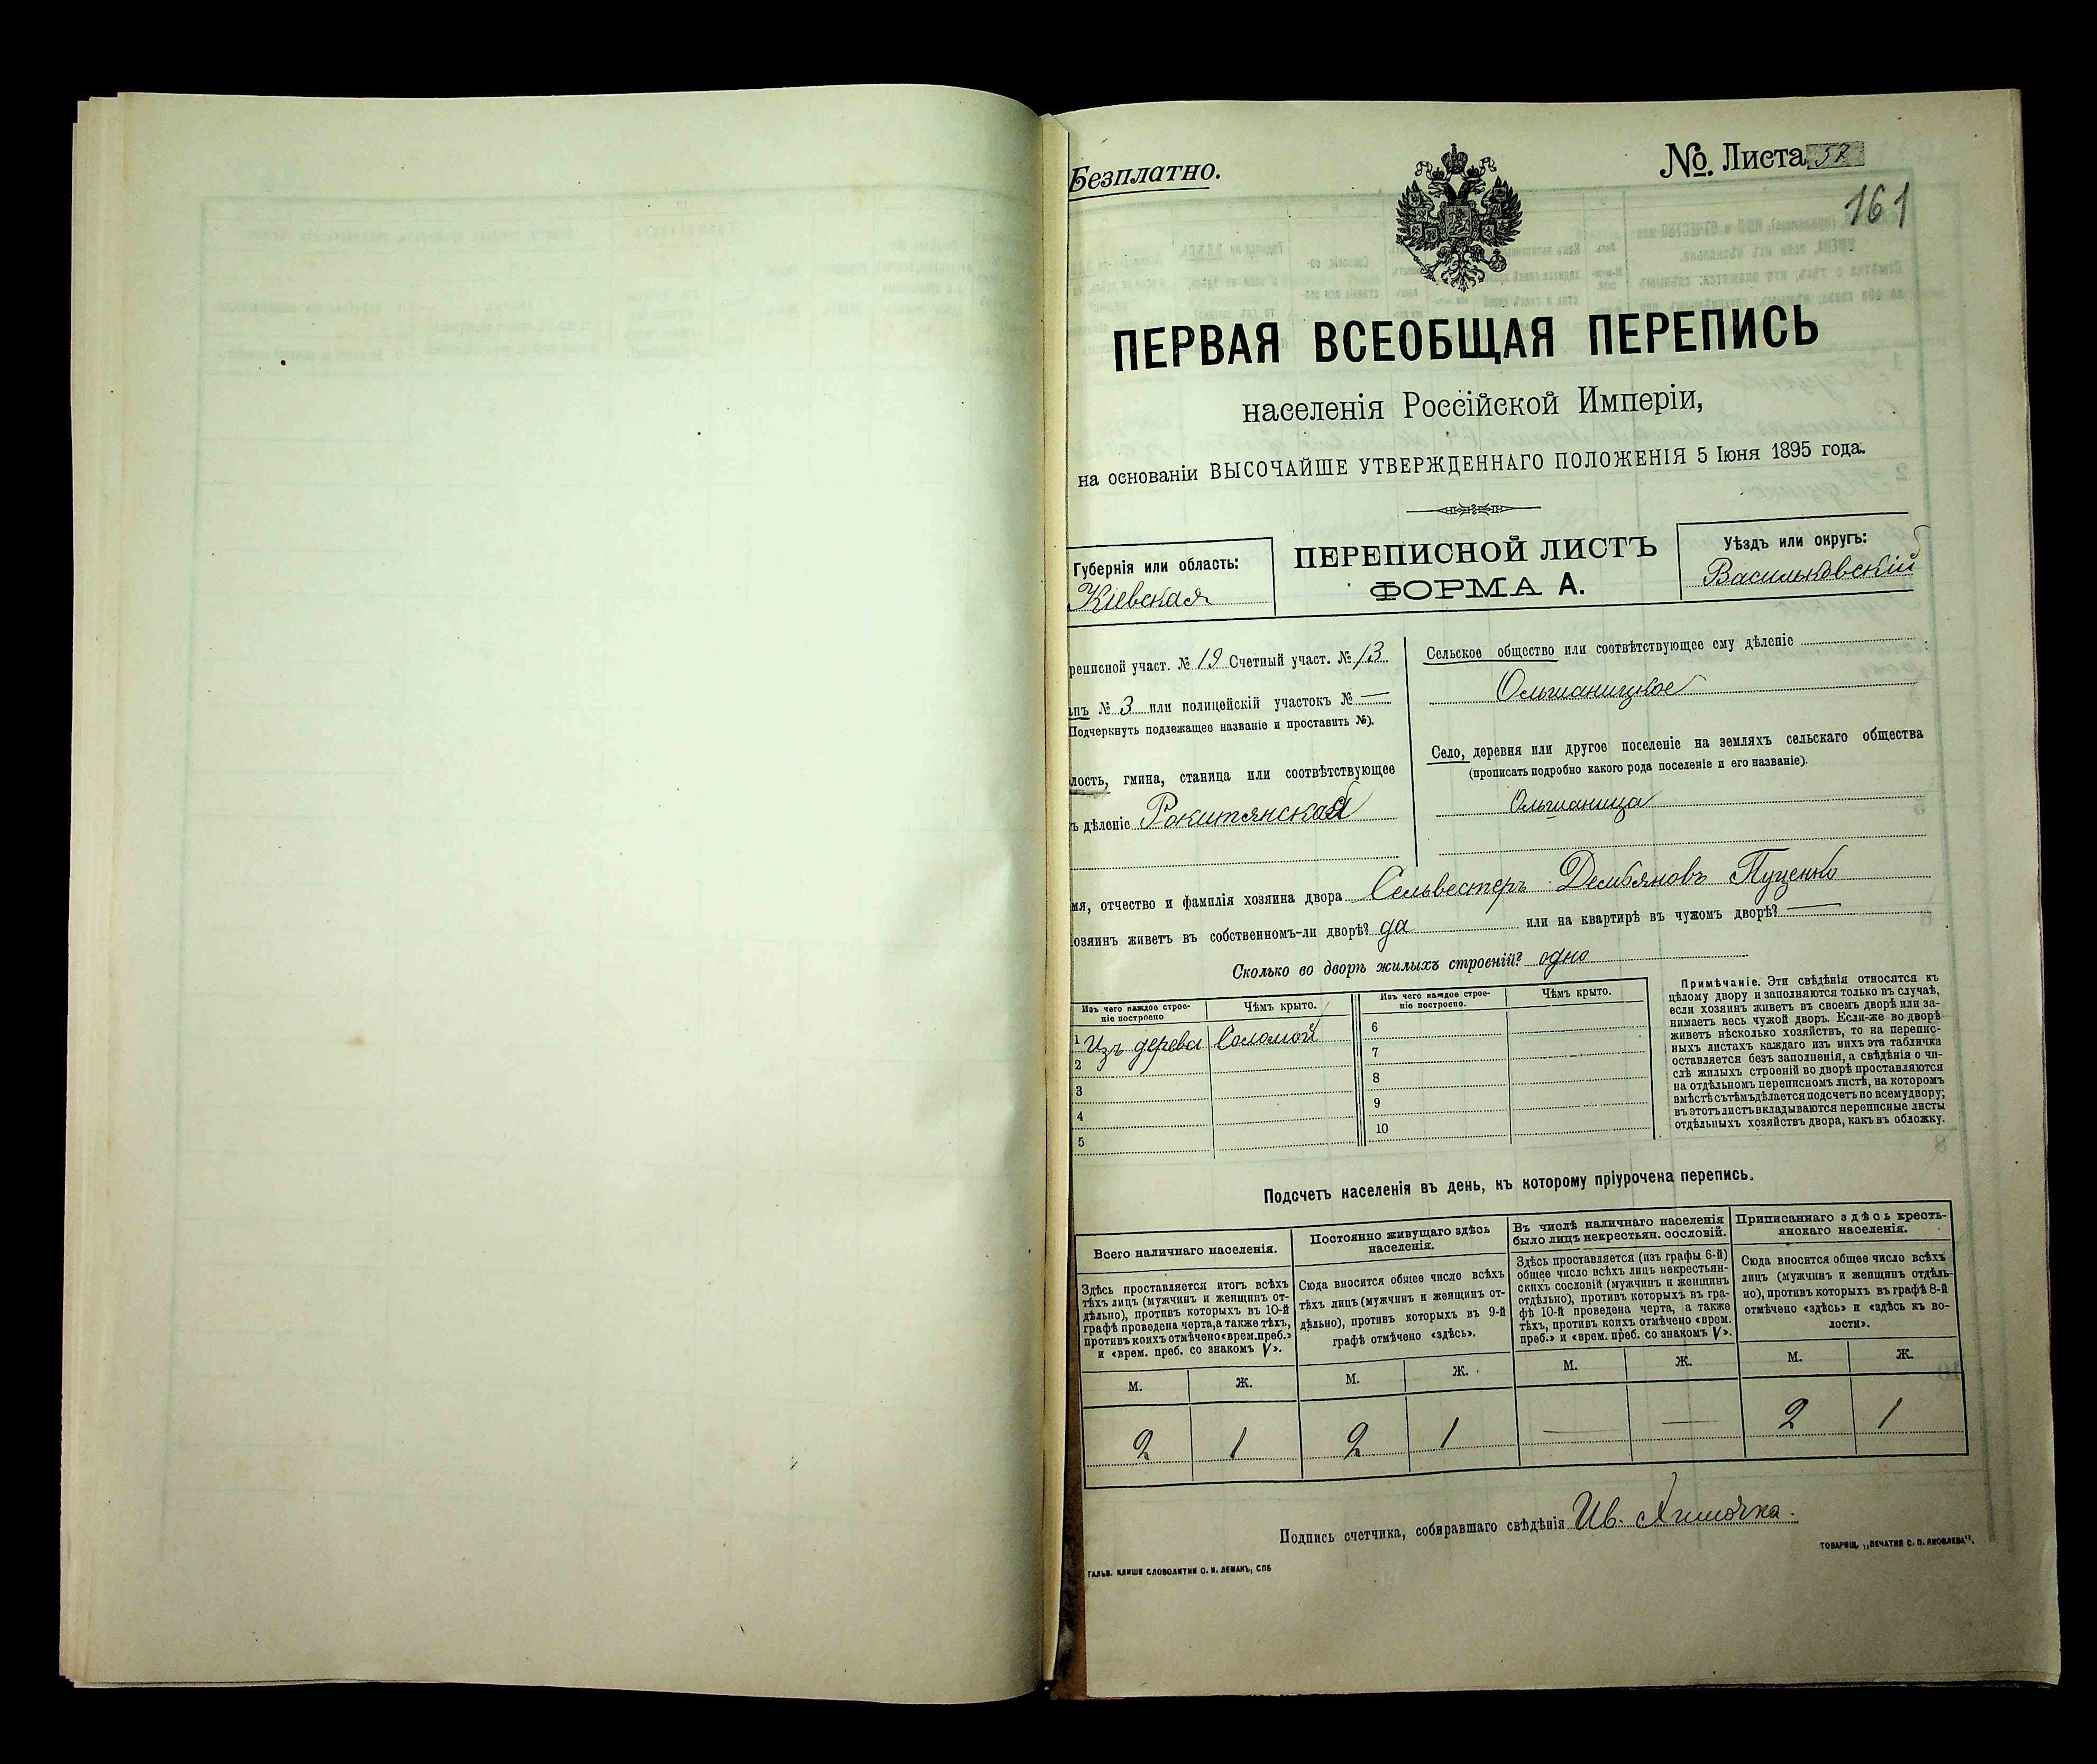 Безплатно.
№. Листа 57
161
ПЕРВАЯ ВСЕОБЩАЯ ПЕРЕПИСЬ
населенія Россійской Имперіи,
на основаніи ВЫСОЧАЙШЕ УТВЕРЖДЕННАГО ПОЛОЖЕНІЯ 5 Іюня 1895 года.
Губернія или область:
Кіевская
ПЕРЕПИСНОЙ ЛИСТЪ
ФОРМА А.
Уѣздъ или округъ:
Васильковскій
реписной участ. № 19 Счетный участ. № 13
анъ № 3 или полицейскій участокъ № —
Подчеркнуть подлежащее названіе и проставить №).
лость, гмина, станица или соотвѣтствующее
ъ дѣленіе Рокитянская
Сельское общество или соотвѣтствующее ему дѣленіе
Ольшаницкое
Село, деревня или другое поселеніе на земляхъ сельскаго общества
(прописать подробно какого рода поселеніе и его названіе).
Ольшаница
мя, отчество и фамилія хозяина двора Сельвестеръ Демьяновъ Пуценко
озяинъ живетъ въ собственномъ-ли дворѣ? да или на квартирѣ въ чужомъ дворѣ? —
Сколько во дворѣ жилыхъ строеній? одно
Изъ чего каждое строе-
ніе построено
Чѣмъ крыто.
Изъ чего каждое строе-
ніе построено.
Чѣмъ крыто.
1 Изъ дерева Соломой
2
3
4
5
6
7
8
9
10
Примѣчаніе. Эти свѣдѣнія относятся къ
цѣлому двору и заполняются только въ случаѣ,
если хозяинъ живетъ въ своемъ дворѣ или за-
нимаетъ весь чужой дворъ. Если-же во дворѣ
живетъ нѣсколько хозяйствъ, то на перепис-
ныхъ листахъ каждаго изъ нихъ эта табличка
оставляется безъ заполненія, а свѣдѣнія о чи-
слѣ жилыхъ строеній во дворѣ проставляются
на отдѣльномъ переписномъ листѣ, на которомъ
вмѣстѣ съ тѣмъ дѣлается подсчетъ по всему двору;
въ этотъ листъ вкладываются переписные листы
отдѣльныхъ хозяйствъ двора, какъ въ обложку.
Подсчетъ населенія въ день, къ которому пріурочена перепись.
Всего наличнаго населенія.
Здѣсь проставляется итогъ всѣхъ
тѣхъ лицъ (мужчинъ и женщинъ от-
дѣльно), противъ которыхъ въ 10-й
графѣ проведена черта, а также тѣхъ,
противъ коихъ отмѣчено «врем. преб.»
и «врем. преб. со знакомъ V».
Постоянно живущаго здѣсь
населенія.
Сюда вносится общее число всѣхъ
тѣхъ лицъ (мужчинъ и женщинъ от-
дѣльно), противъ которыхъ въ 9-й
графѣ отмѣчено «здѣсь».
Въ числѣ наличнаго населенія
было лицъ некрестьян. сословій.
Здѣсь проставляется (изъ графы 6-й)
общее число всѣхъ лицъ некрестьян-
скихъ сословій (мужчинъ и женщинъ
отдѣльно), противъ которыхъ въ гра-
фѣ 10-й проведена черта, а также
тѣхъ, противъ коихъ отмѣчено «врем.
преб.» и «врем. преб. со знакомъ V».
Приписаннаго здѣсь кресть-
янскаго населенія.
Сюда вносится общее число всѣхъ
лицъ (мужчинъ и женщинъ отдѣль-
но), противъ которыхъ въ графѣ 8-й
отмѣчено «здѣсь» и «здѣсь къ во-
лости».
М. Ж. М. Ж. М. Ж. М. Ж.
2 1 2 1 — — 2 1
Подпись счетчика, собиравшаго свѣдѣнія Ив.
ГАЛЬВ. КЛИШЕ СЛОВОЛИТНИ О. И. ЛЕМАНЪ, СПБ
ТОВАРИЩ. „ПЕЧАТНЯ С. П. ЯКОВЛЕВА".